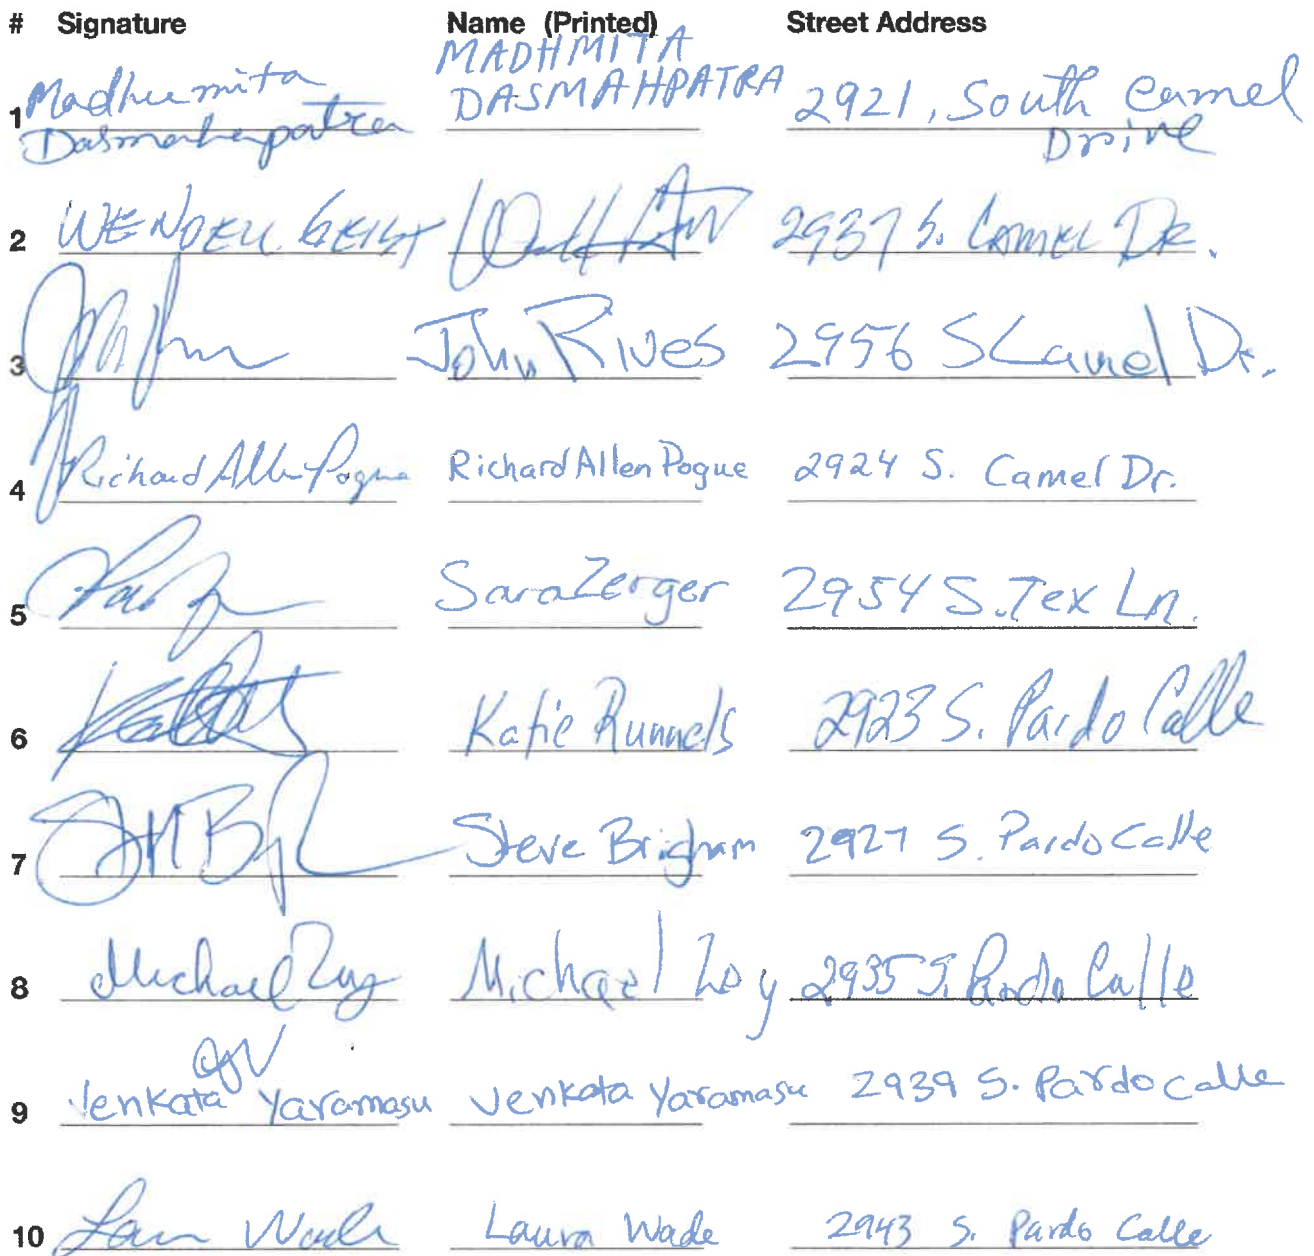 # Signature Name (Printed) Street Address
MADHMITA
Madhumita DASMAHPATRA 2921, South Camel
1 Dasmahapatra Drive
2 WENDELL GEIST 2937 S. CAMEL DR.
3 John Rives 2956 S Camel Dr.
4 Richard Allen Pogue Richard Allen Pogue 2924 S. Camel Dr.
5 Sara Zerger 2954 S. Tex Ln.
6 Katie Runnels 2923 S. Pardo Calle
7 Steve Brigham 2927 S. Pardo Calle
8 Michael Michael 2935 S. Pardo Calle
9 Venkata Yaramasu Venkata Yaramasu 2939 S. Pardo calle
10 Laura Wade Laura Wade 2943 S. Pardo Calle